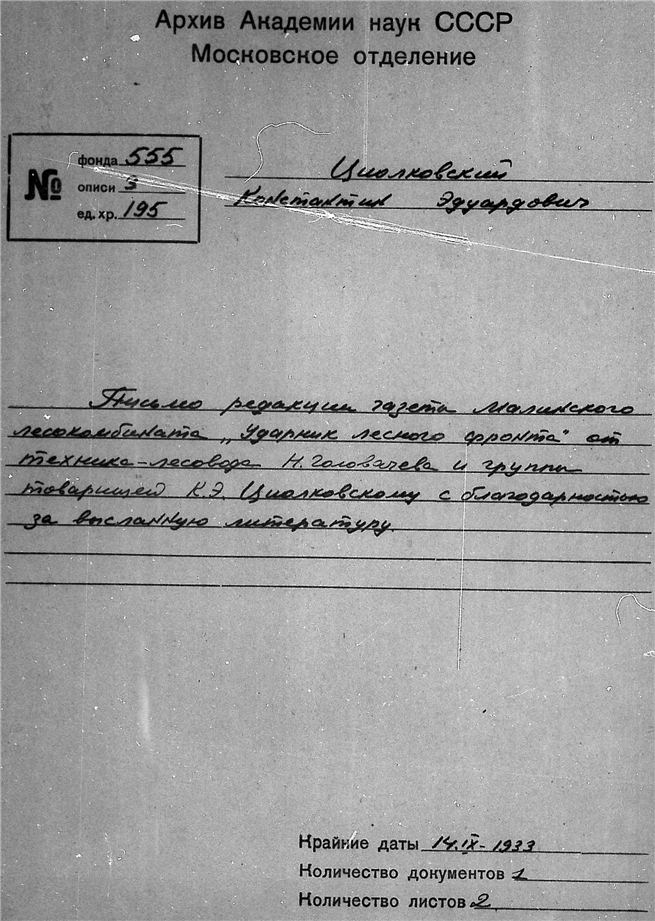 Архив Академии наук СССР
Московское отделение
№
фонда 555
описи 3
ед. хр. 195
Циолковский
Константин Эдуардович
Письмо редакции газеты Малинского
лесокомбината „Ударник лесного фронта" от
техника-лесовода Н. Головачева и группы
товарищей К.Э. Циолковскому с благодарностью
за высланную литературу.
Крайние даты 14.IX-1933
Количество документов 1
Количество листов 2